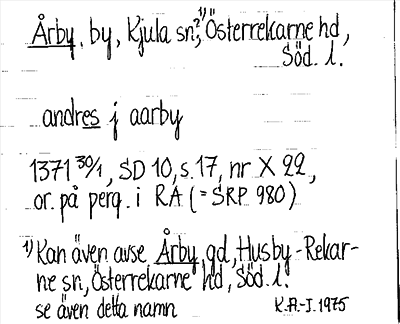 Årby, by, Kjula sn,?¹⁾ Österrekarne hd,
Söd. l.
andres j aarby
1371 30/1, SD 10, s. 17, nr X 22,
or. på perg. i RA (= SRP 980)
¹⁾ Kan även avse Årby gd, Husby-Rekar-
ne sn, Österrekarne hd, Söd. l.
se även detta namn
K.A-J. 1975